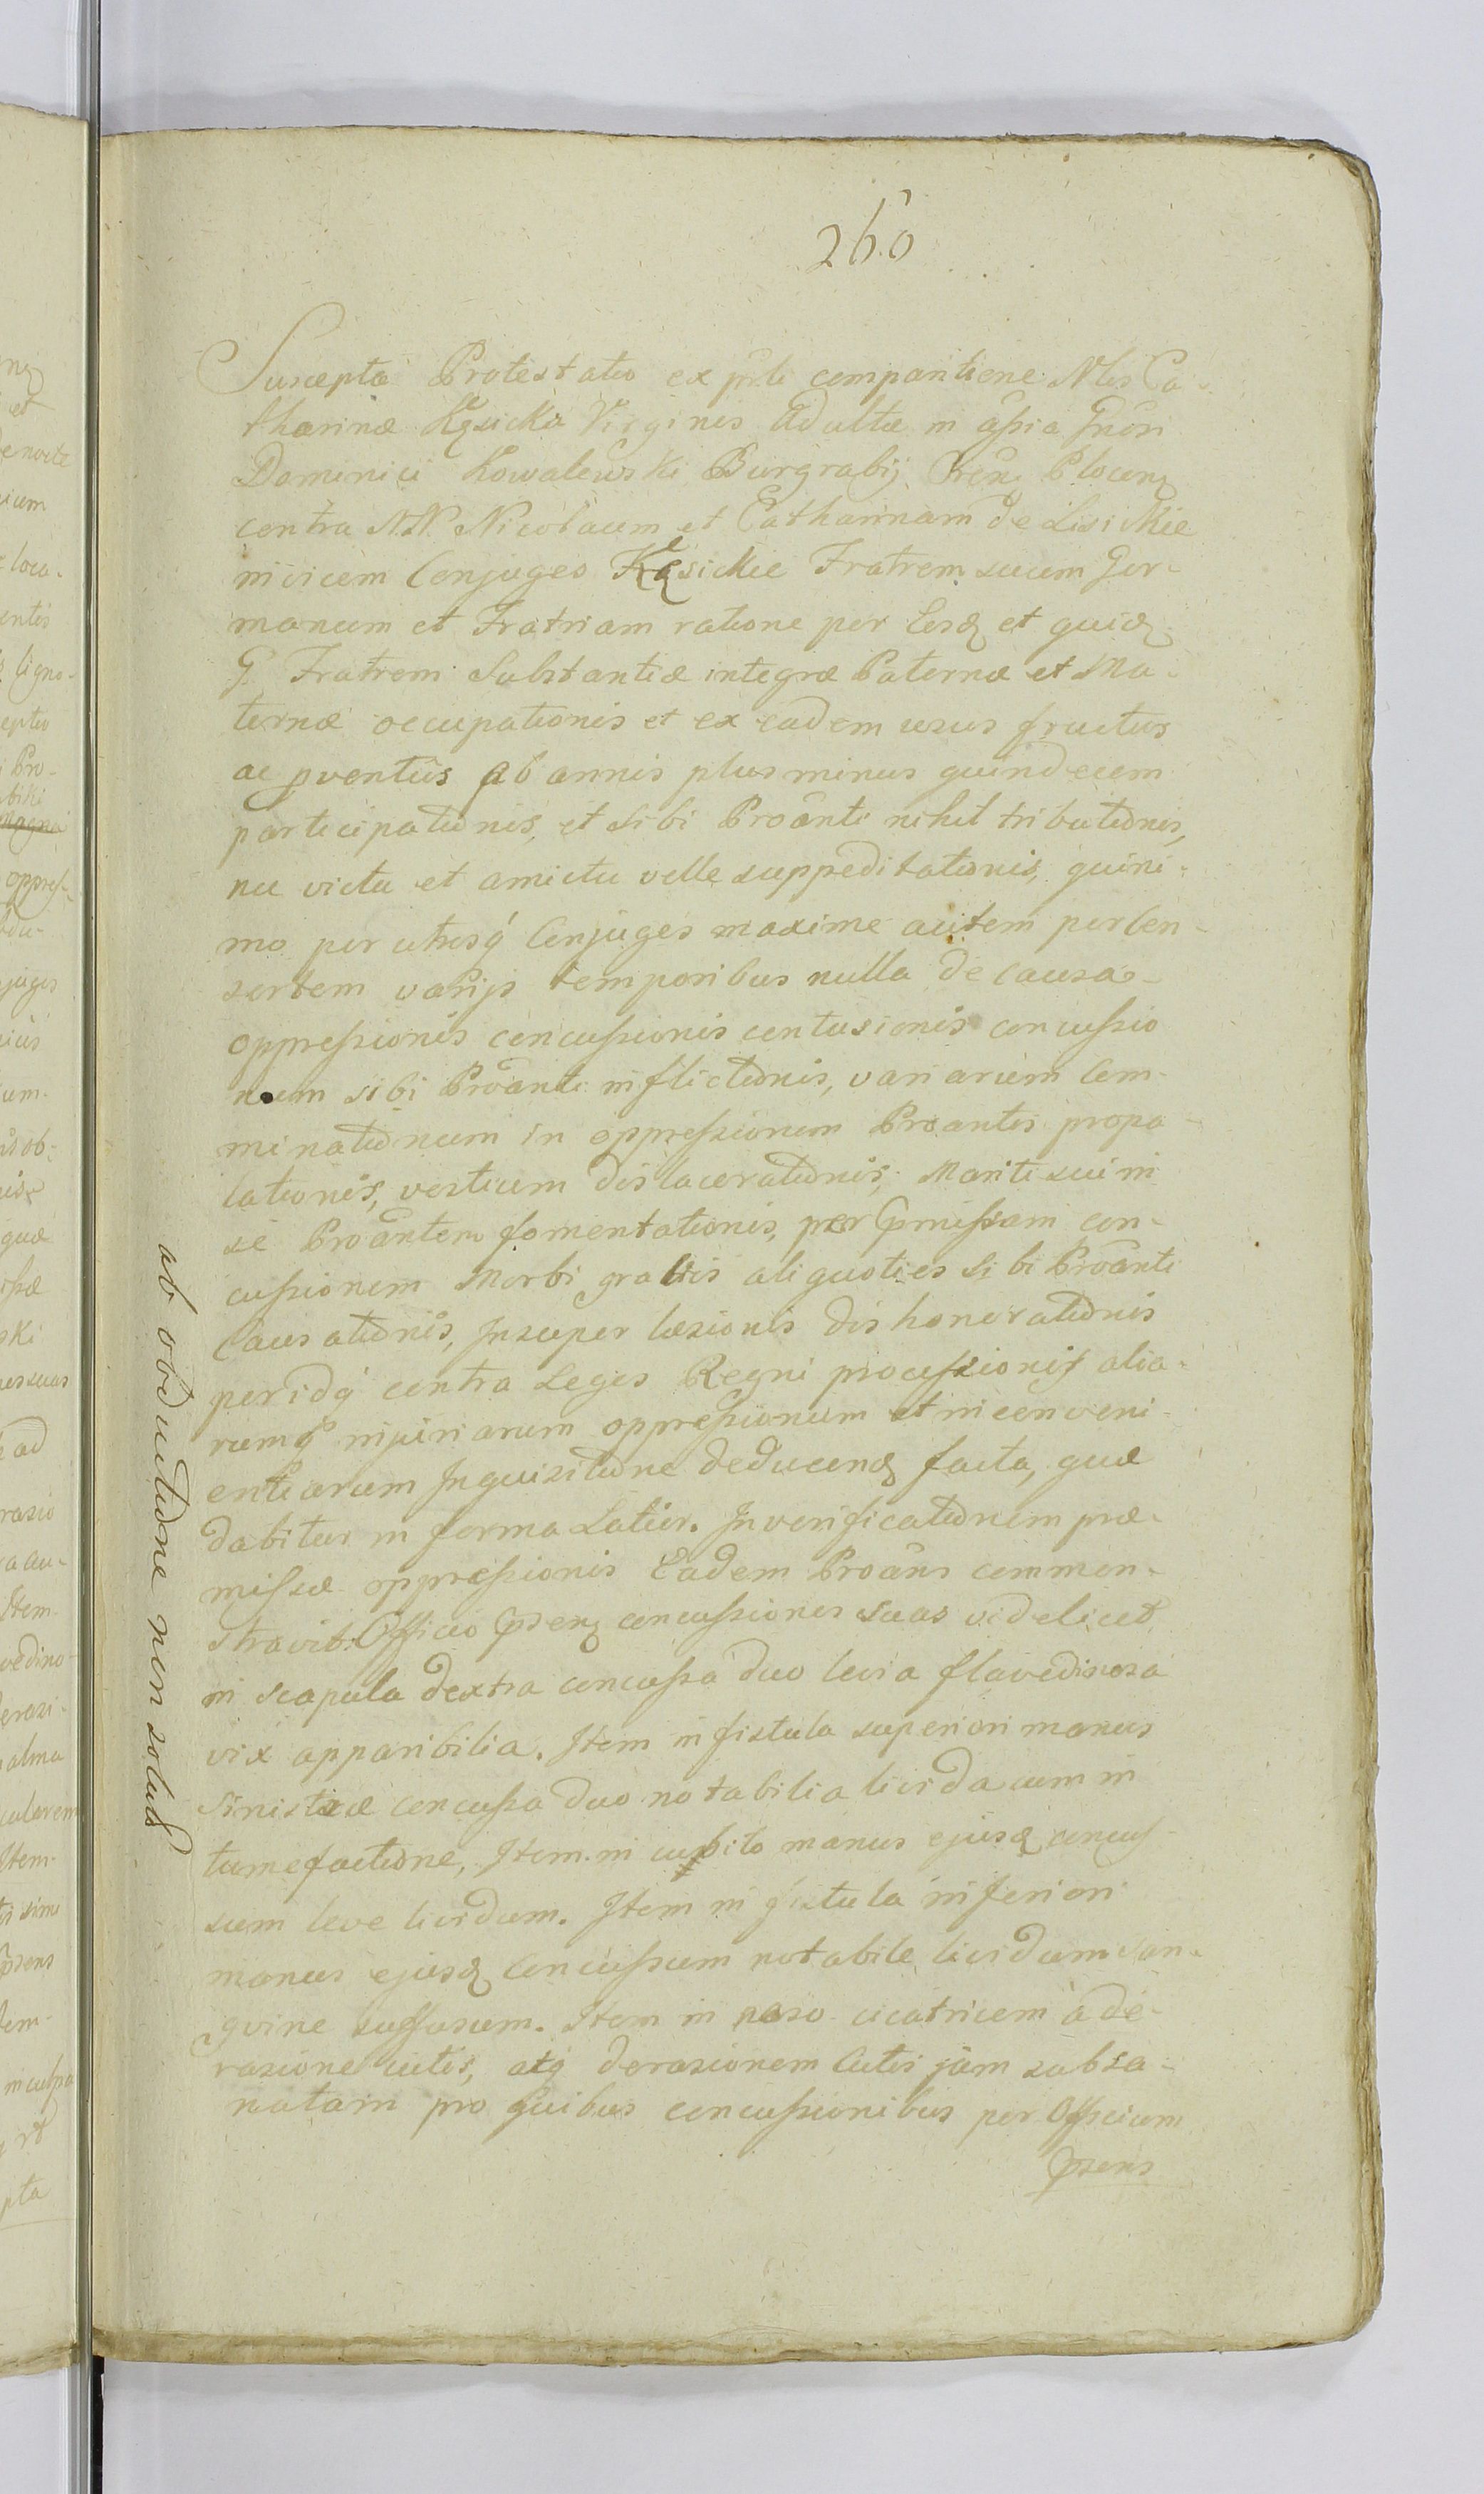 260
Suscepta Protestatio ex psli compantione Nlis Ca-
tharinæ Kęsicka Virginis Adultæ in assia Gnosi
Dominici Kowalewski Burgrabij Cren: Plocen
contra N.N. Nicolaum et Catharinam de Lisickie
invicem Conjuges Kęsickie Fratrem suum Ger-
manum et Fratriam ratione per Eosd et quid
G. Fratrem Substantiæ integræ Paternæ et Ma-
ternæ occupationis et ex eadem usus fructus
ac pventûs ab annis plus minus quindecem
participationis, et sibi Proânti nihil tributionis,
nec victu et amictu velle suppeditationis, quini-
mo per utrosq̀ Conjuges maxime autem per Con-
sortem varijs temporibus nulla de causa
oppressionis concussionis contusionis concussio
num sibi Proânti inflictionis, variarum Com-
minationum in oppressionem Proantis propa-
lationis, vestium dislacerationis, Mariti sui in
se Proântem fomentationis, per Pmissam con-
cussionem Morbi gravis aliquoties sibi Proânti
Causationis, Insuper læsionis dishonorationis
per idq̀ contra Leges Regni processionis alia-
rumq̀ injuriarum oppressionum et inconveni-
entiarum Inquisitione deducend facta, quæ
dabitur in forma Latior. In verificationem præ-
missæ oppressionis Eadem Proâns common-
stravit Officio Psen concussiones suas videlicet
in scapula dextra concussa duo levia flavedinosa
vix apparibilia. Item in fistula superiori manus
sinistræ concussa duo notabilia livida cum in
tumefactione, Item in cubito manus ejusd concus-
sum leve lividum. Item in fistula inferiori
manus ejusd concussum notabile lividum san-
gvine suffusum. Item in naso cicatricem à de-
rasione cutis, atq̀ derasionem Cutis jam subsa-
natam pro quibus concussionibus per Officium
Psens
ab obductione non solut